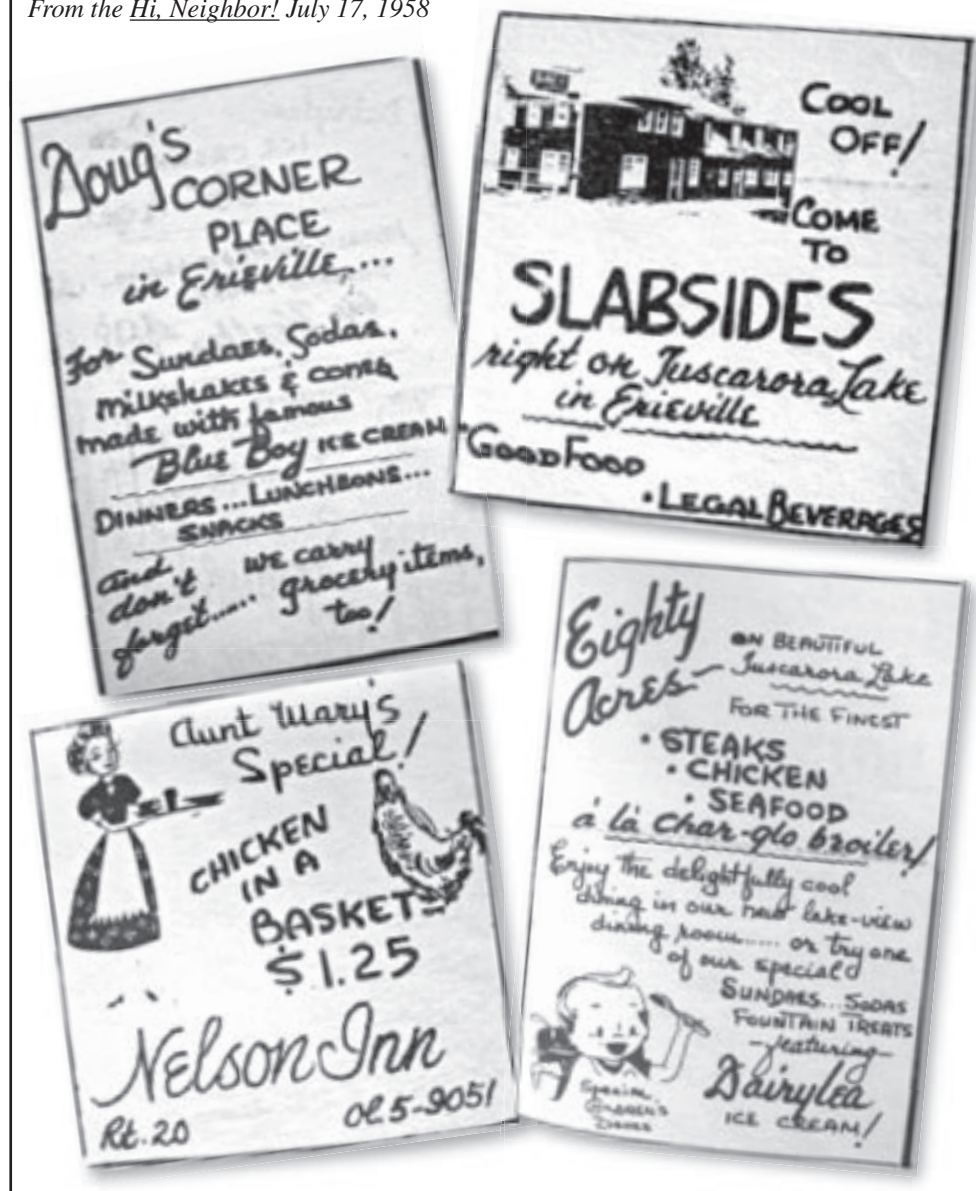 From the Hi, Neighbor! July 17, 1958
Doug's
CORNER
PLACE
in Erieville....
For Sundaes, Sodas,
milkshakes & cones
made with famous
Blue Boy ICE CREAM
DINNERS...LUNCHEONS...
SNACKS
and
don't
forget.....
we carry
grocery items,
too!
COOL
OFF!
COME
TO
SLABSIDES
right on Tuscarora Lake
in Erieville
• GOOD FOOD
• LEGAL BEVERAGES
Aunt Mary's
Special!
CHICKEN
IN A
BASKET
$1.25
Nelson Inn
Rt. 20
OL 5-9051
Eighty
Acres
ON BEAUTIFUL
Tuscarora Lake
FOR THE FINEST
• STEAKS
• CHICKEN
• SEAFOOD
á là char-glo broiler!
Enjoy the delightfully cool
dining in our new lake-view
dining room..... or try one
of our special
SUNDAES... SODAS
FOUNTAIN TREATS
-featuring-
Dairylea
ICE CREAM!
Special
Children's